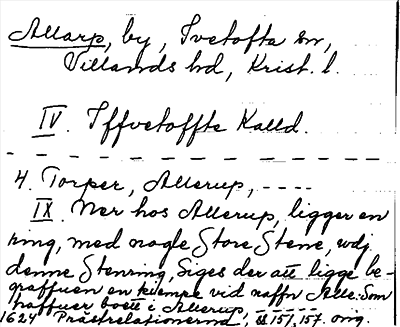 Allarp, by, Ivetofta sn,
Villands hd, Krist. l.
IV. Iffvetoffte Kalld.
4. Torper, Allerup, ----
IX. Ner hos Allerup, ligger en
ring, med nogle Store Stene, udj
denne Stenring, Siges der att ligge be-
graffuen en kiempe vid naffn Alle. Som
haffuer boett i Allerup,
1624 Prästrelationerna, 157, orig.